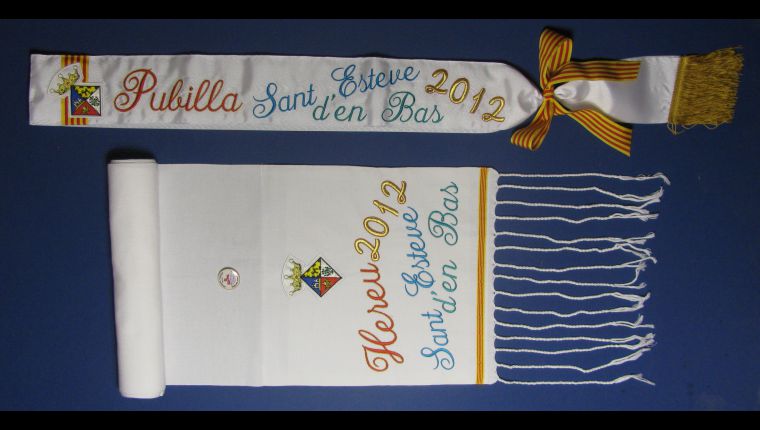 Pubilla Sant Esteve d'en Bas 2012
Hereu 2012
Sant Esteve
d'en Bas